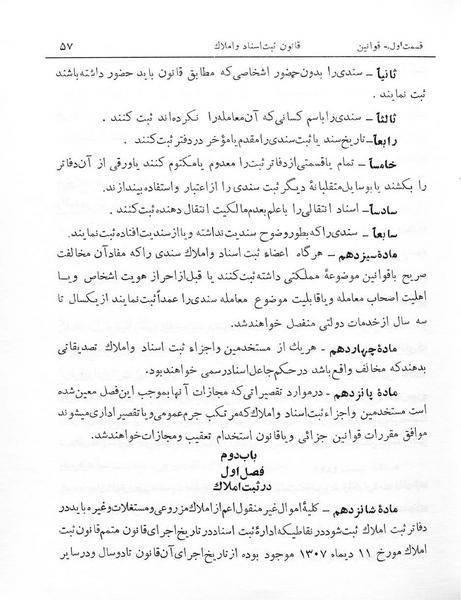 قسمت اول - قوانین قانون ثبت اسناد و املاك ۵۷
ثانیاً - سندی را بدون حضور اشخاصی که مطابق قانون باید حضور داشته باشند
ثبت نمایند .
ثالثاً - سندی را باسم کسانی که آن معامله را نکرده اند ثبت کنند .
رابعاً - تاریخ سند یا ثبت سندی را مقدم یا مؤخر در دفتر ثبت کنند .
خامساً - تمام یا قسمتی از دفاتر ثبت را معدوم یا مکتوم کنند یا ورقی از آن دفاتر
را بکشند یا بوسایل متقلبانۀ دیگر ثبت سندی را از اعتبار و استفاده بیندازند.
سادساً - اسناد انتقالی را با علم بعدم مالکیت انتقال دهنده ثبت کنند .
سابعاً - سندی را که بطور وضوح سندیت نداشته و یا از سندیت افتاده ثبت نمایند.
مادۀ سیزدهم - هرگاه اعضاء ثبت اسناد و املاك سندی را که مفاد آن مخالفت
صریح با قوانین موضوعۀ مملکتی داشته ثبت کنند یا قبل از احراز هویت اشخاص و یا
اهلیت اصحاب معامله و یا قابلیت موضوع معامله سندی را عمداً ثبت نمایند از یکسال تا
سه سال از خدمات دولتی منفصل خواهند شد.
مادۀ چهاردهم - هر یك از مستخدمین و اجزاء ثبت اسناد و املاك تصدیقاتی
بدهند که مخالف واقع باشد در حکم جاعل اسناد رسمی خواهند بود.
مادۀ پانزدهم - در موارد تقصیراتی که مجازات آنها بموجب این فصل معین شده
است مستخدمین و اجزاء ثبت اسناد و املاك که مرتکب جرم عمومی و یا تقصیر اداری میشوند
موافق مقررات قوانین جزائی و یا قانون استخدام تعقیب و مجازات خواهند شد.
باب دوم
فصل اول
در ثبت املاك
مادۀ شانزدهم - کلیۀ اموال غیر منقول اعم از املاك مزروعی و مستغلات و غیره باید در
دفاتر ثبت املاك ثبت شود در نقاطیکه ادارۀ ثبت اسناد در تاریخ اجرای قانون متمم قانون ثبت
املاك مورخ ۱۱ دیماه ۱۳۰۷ موجود بوده از تاریخ اجرای آن قانون تا دو سال و در سایر